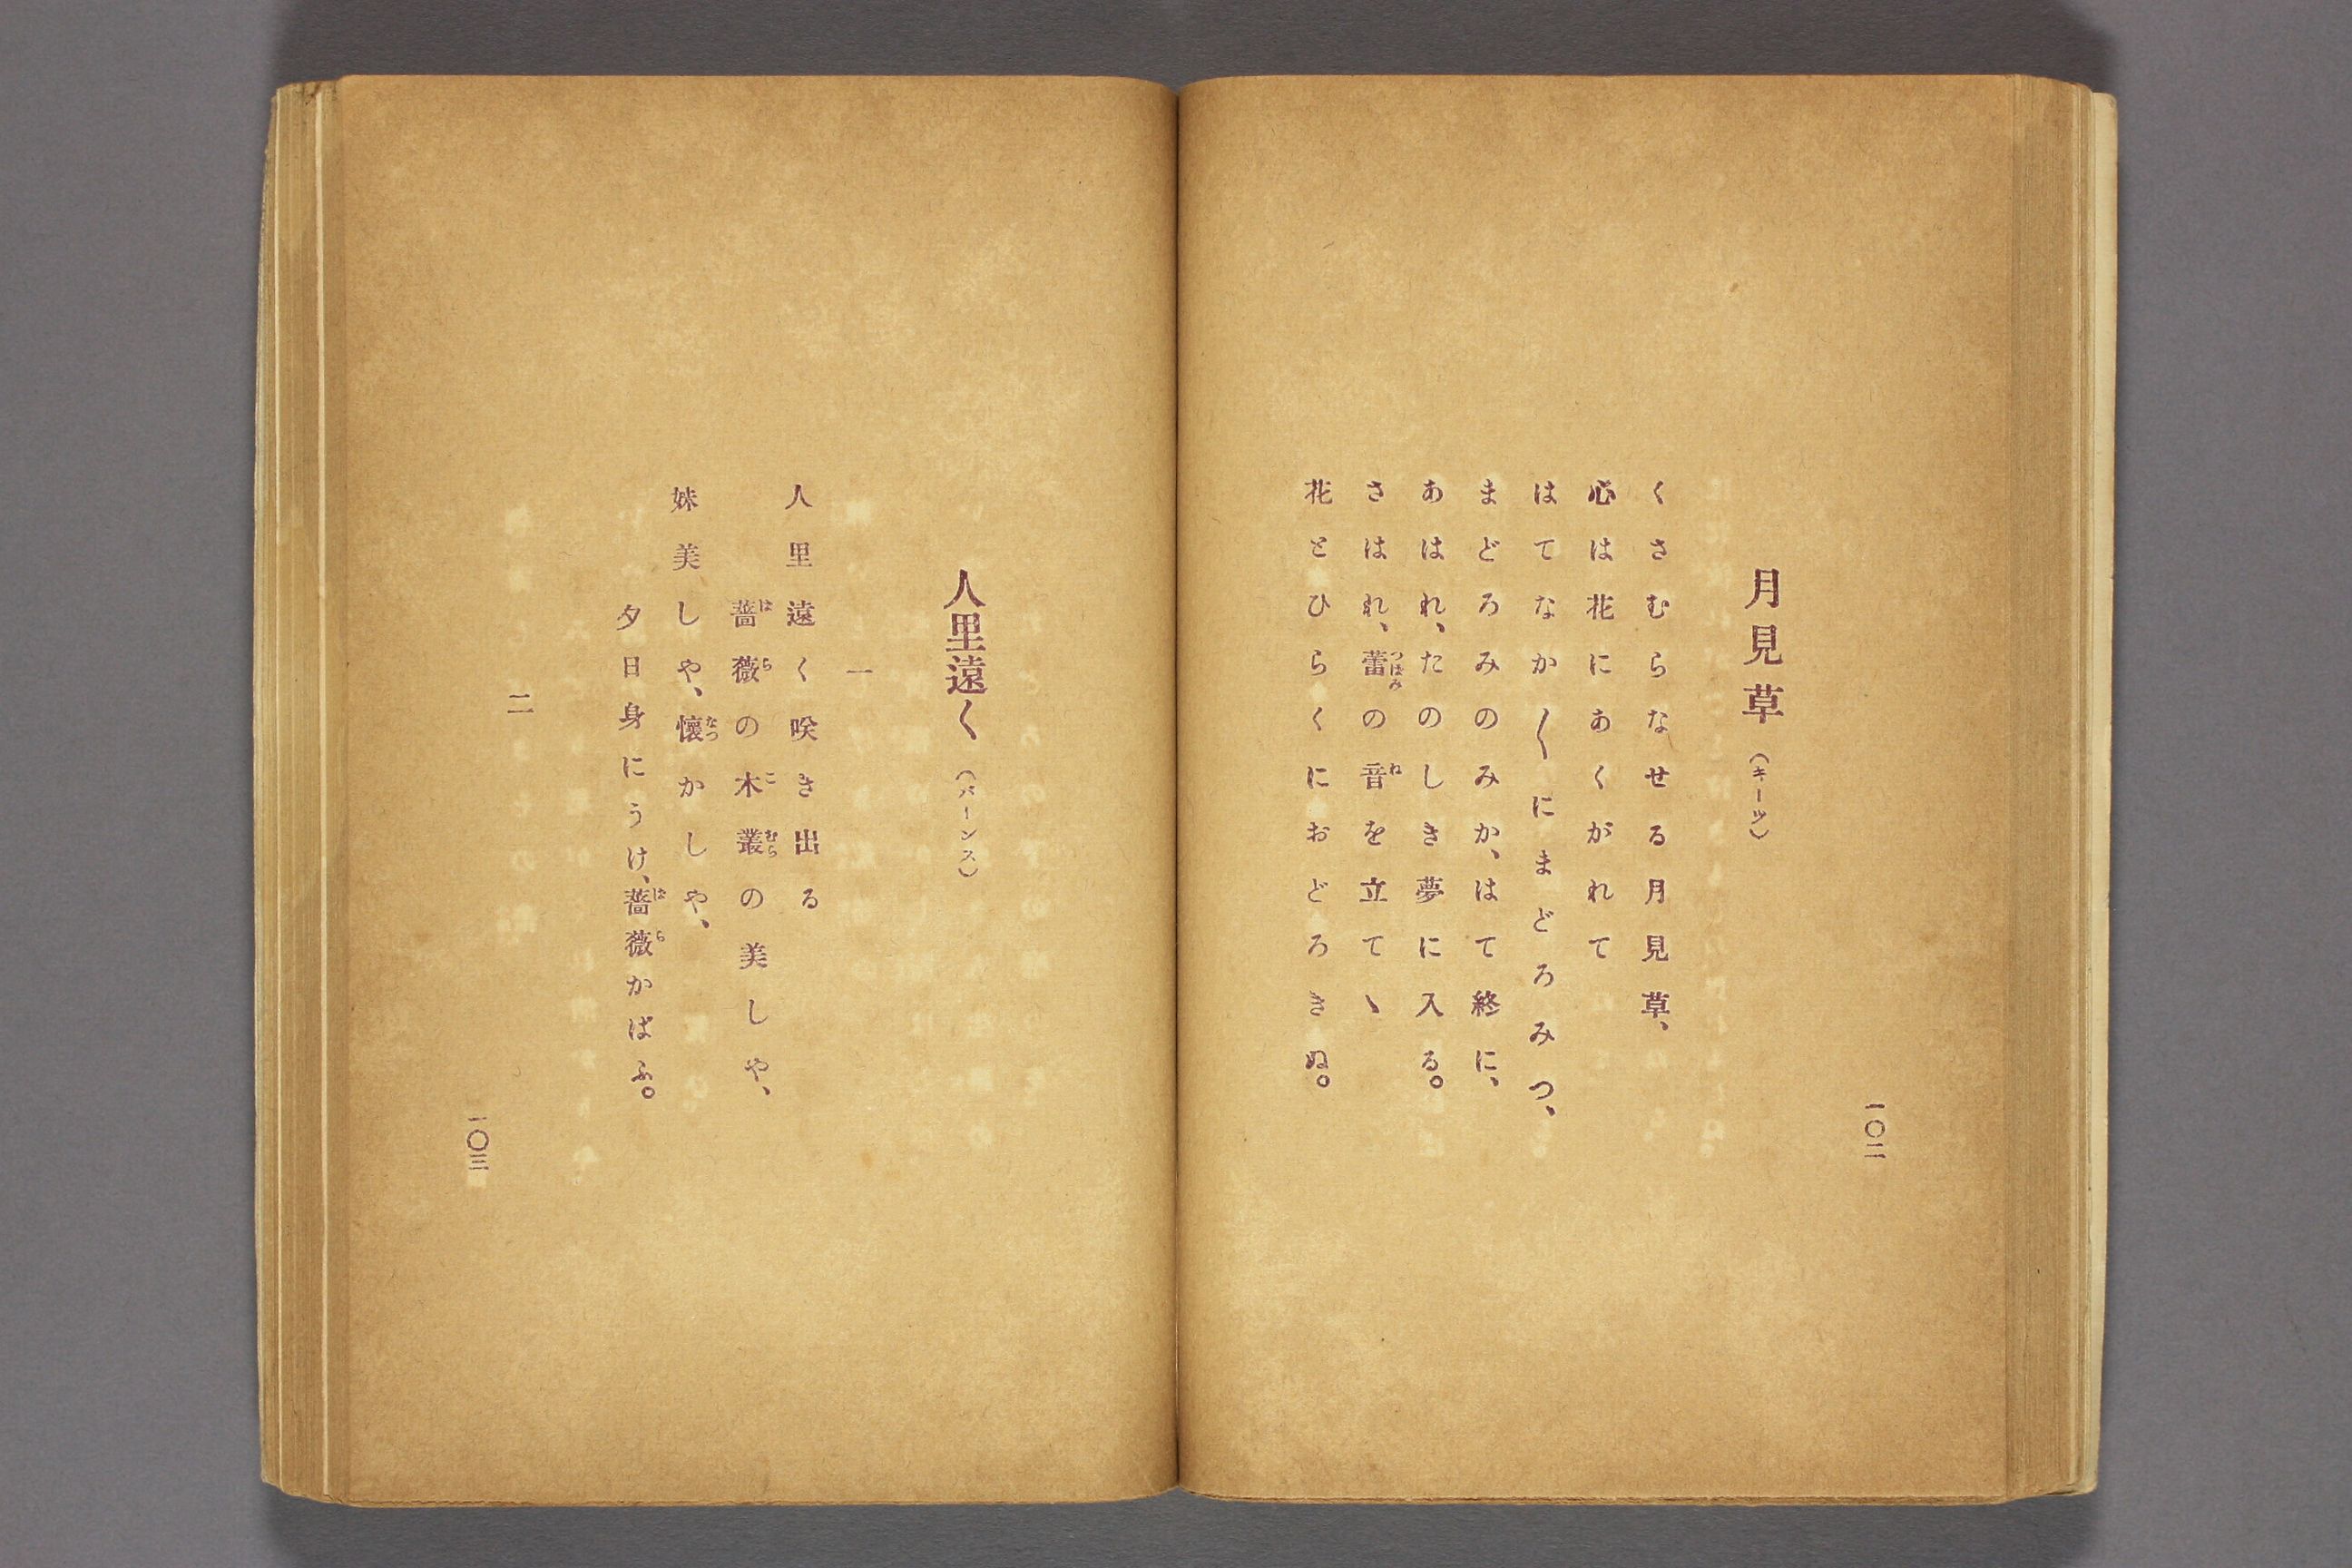 月見草(キーツ)
くさむらなせる月見草、
心は花にあくがれて
はてなか〳〵にまどろみつ、
まどろみのみか、はて終に、
あはれ、たのしき夢に入る。
さはれ、蕾の音を立てゝ
花とひらくにおどろきぬ。
一〇二
人里遠く(バーンス)
一
人里遠く咲き出る
薔薇の木叢の美しや、
妹美しや、懷かしや、
夕日身にうけ、薔薇かばふ。
二
一〇三